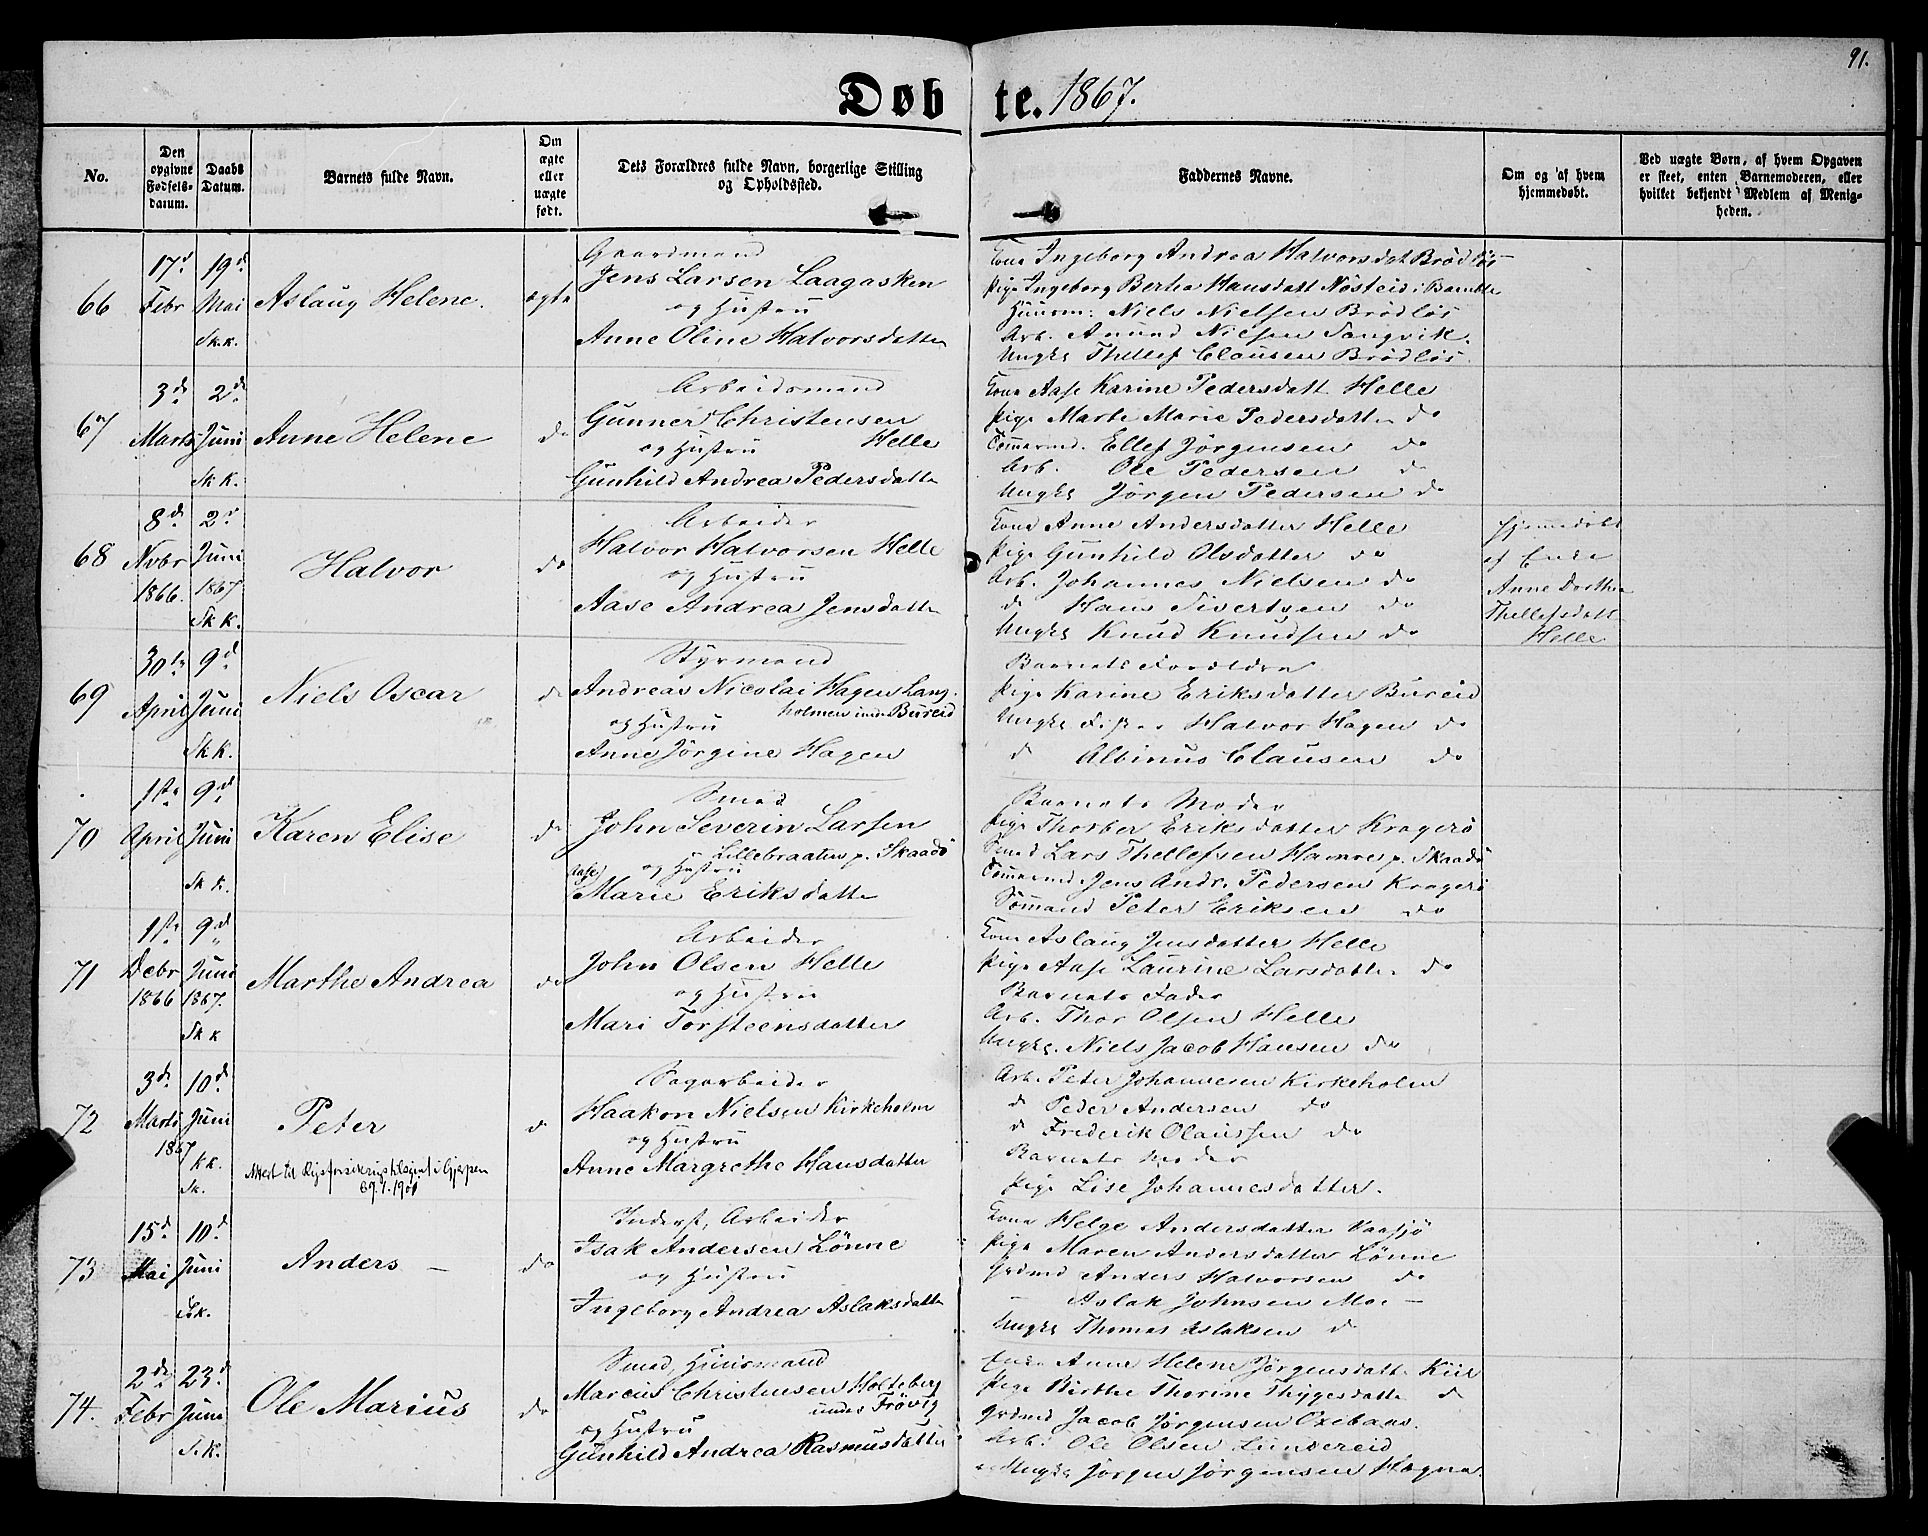 91.
Døbte. 1867.
No.
Den opgivne Fødsels-datum.
Daabs Datum.
Barnets fulde Navn.
Om ægte eller uægte født.
Dets Forældres fulde Navn, borgerlige Stilling og Opholdssted.
Faddernes Navne.
Om og af hvem hjemmedøbt.
Ved uægte Børn, af hvem Opgaven er skeet, enten Barnemoderen, eller hvilket bekjendt Medlem af Menigheden.
66
17d Febr
19d Mai Sk.k.
Aslaug Helene.
ægte
Gaardmand
Jens Larsen Laagasken
og Hustru
Anne Oline Halvorsdatter
Kone Ingeborg Andrea Halvorsdat Brødløs
Pige Ingeborg Berthe Hansdatt Nøsteid i Bamble
Huusm: Niels Nielsen Brødløs
Arb. Amund Nielsen Tangvik.
Ungk. Thellef Clausen Brødløs.
67
3d Marts
2d Juni Sk K.
Anne Helene
do
Arbeidsmand
Gunner Christensen
og Hustru Helle
Gunhild Andrea Pedersdatter
Kone Aase Karine Pedersdatt Helle
Pige Marte Marie Pedersdatter do
Tømmermd. Ellef Jörgensen do
Arb. Ole Pedersen do
Ungk. Jörgen Pedersen do
68
8d Nvbr 1866.
2d Juni 1867 Sk K.
Halvor
do
Arbeider
Halvor Halvorsen Helle
og Hustru
Aase Andrea Jensdatter
Kone Anne Andersdatter Helle
Pige Gunhild Olsdatter do
Arb. Johannes Nielsen do
d Hans Sivertsen do
Ungk. Knud Knudsen do
Hjemmedøbt
af Enke
Anne Dorthea
Thellefsdatt
Helle
69
30te April
9d Juni Sk K.
Niels Oscar
do
Styrmand
Andreas Nicolai Hagen Lang-
holmen under Bureid
og Hustru
Anne Jörgine Hagen
Barnets Forældre
Pige Karine Eriksdatter Bureid
Ungk. Fisker Halvor Hagen do
d Albinus Clausen do
70
1ste April
9d Juni Sk K.
Karen Elise
do
Smed
John Severin Larsen
Lillebraaten p. Skaadö
og Hustru
(Aase)
Marie Eriksdatter
Barnets Moder
Pige Thorber Eriksdatter Kragerö
Smed Lars Thellefsen Hamre p. Skaadö
Tømmermd. Jens Andr. Pedersen Kragerö
Sömand Peter Eriksen do
71
1ste Debr 1866
9d Juni 1867. Sk K
Marthe Andrea
do
Arbeider
John Olsen Helle
og Hustru
Mari Torsteensdatter
Kone Aslaug Jensdatter Helle
Pige Aase Laurine Larsdatter do
Barnets Fader
Arb. Thor Olsen Helle
Ungk. Niels Jacob Hansen do
72
3d Marts 1867
10d Juni K.K. Sk.
Peter
Attest til Rigsforsikringstilsynet i Gjerpen
d
Sagarbeider
Haakon Nielsen Kirkeholm
og Hustru
Anne Margrethe Hansdatter
Arb. Peter Johannesen Kirkeholm
d Peder Andersen do
d Frederik Olaussen do
Barnets Moder
Pige Lise Johannesdatter.
73
15d Mai
10d Juni Sk.
Anders –
do
Inderst, Arbeider
Isak Andersen Lönne
og Hustru
Ingeborg Andrea Aslaksdatter
Kone Helge Andersdatter Vaasjö
Pige Maren Andersdatter Lönne
Grdmd Anders Halvorsen do
– Aslak Johnsen Moe –
Ungk. Thomas Aslaksen do
74.
2de Febr
23d Juni S.K.
Ole Marius
do
Smed, Huusmand
Marcus Christensen Holteberg
under Frövig
og Hustru
Gunhild Andrea Rasmusdatter
Enke Anne Helene Jörgensdatt. Kiil
Pige Birthe Thorine Thygesdatter d
Grdmd Jacob Jörgensen Oxebaas.
Arb. Ole Olsen Lundereid
Ungk. Jörgen Jörgensen Hagna.